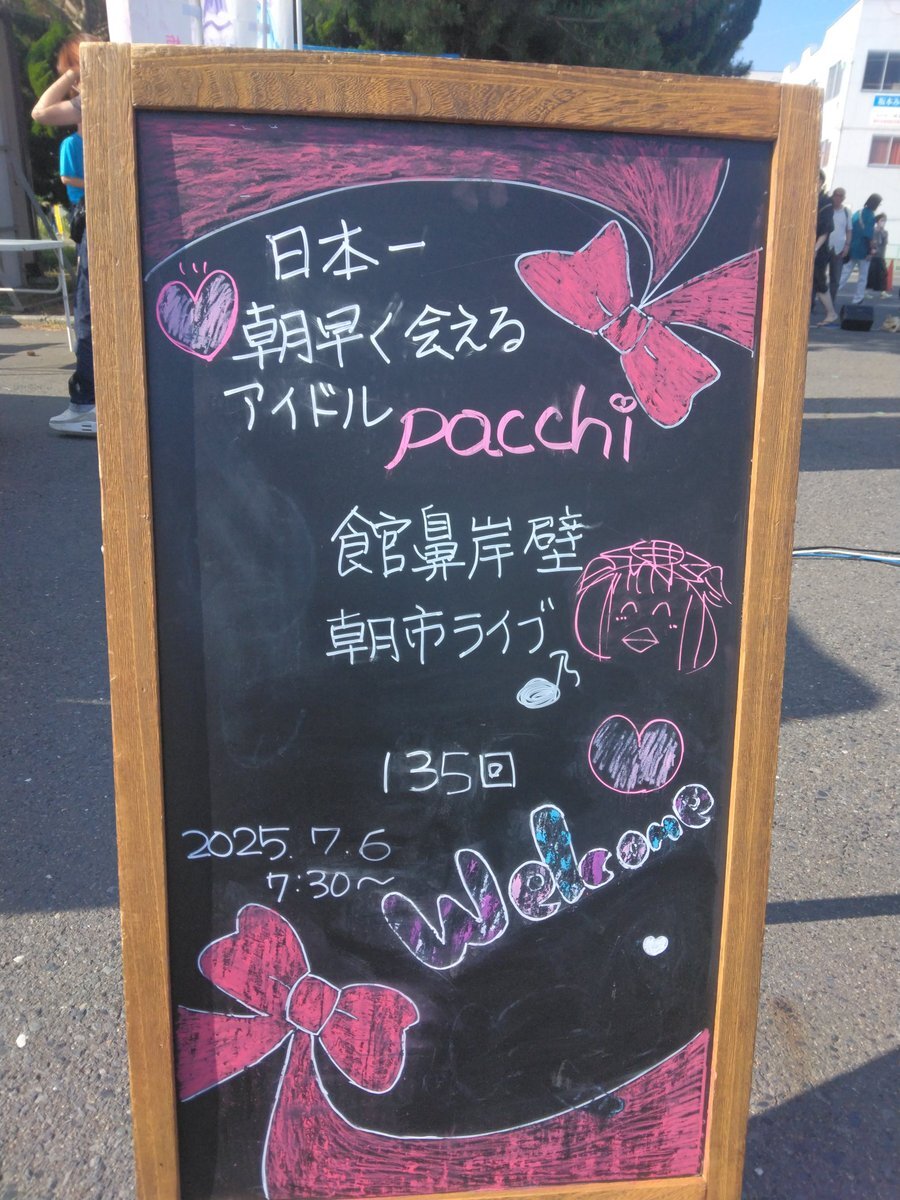 日本一
朝早く会える
アイドル pacchi
館鼻岸壁
朝市ライブ
135回
2025.7.6
7:30～
Welcome